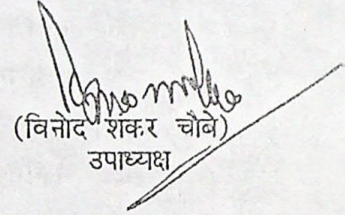 (विनोद शंकर चौबे)
उपाध्यक्ष